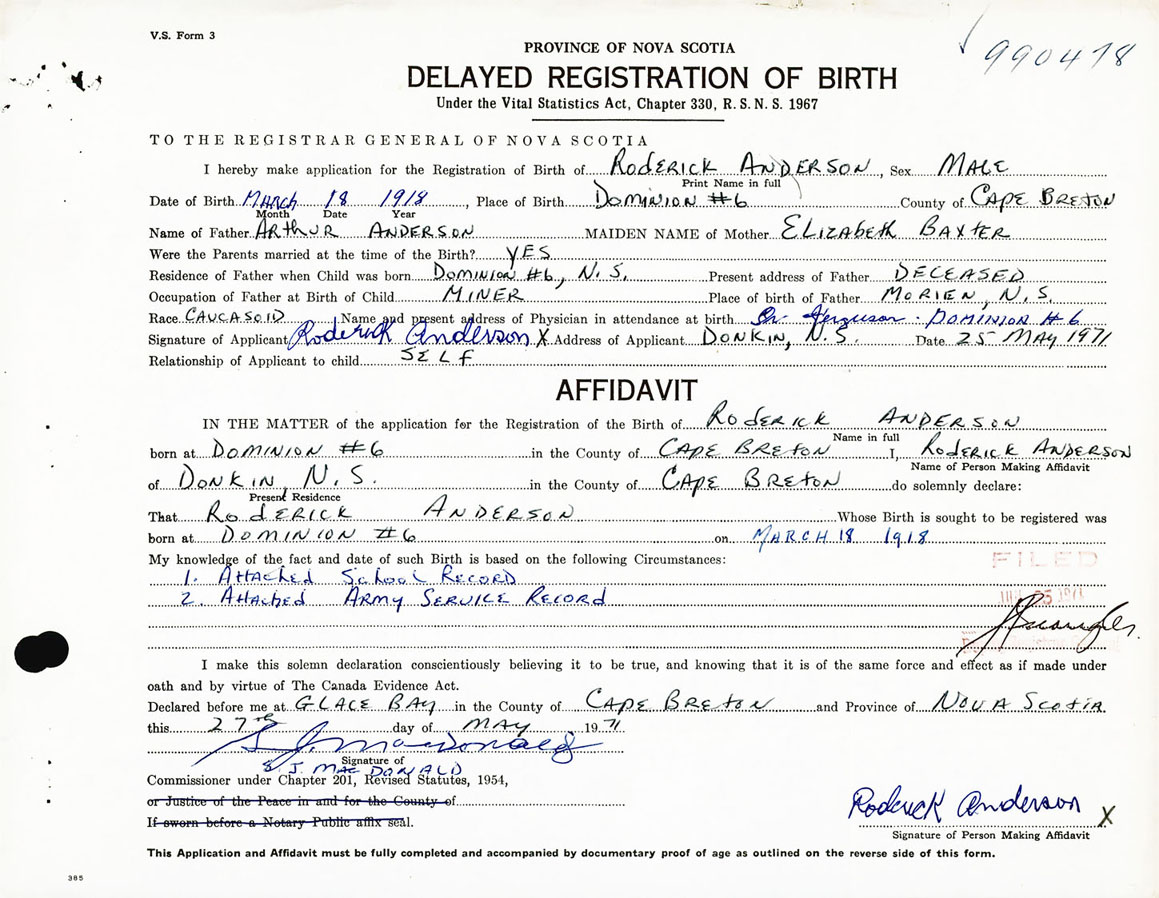 V.S. Form 3
990478
PROVINCE OF NOVA SCOTIA
DELAYED REGISTRATION OF BIRTH
Under the Vital Statistics Act, Chapter 330, R.S.N.S. 1967
TO THE REGISTRAR GENERAL OF NOVA SCOTIA
I hereby make application for the Registration of Birth of RODERICK ANDERSON, Sex MALE
Print Name in full
Date of Birth MARCH 18 1918, Place of Birth DOMINION #6 County of CAPE BRETON
Month Date Year
Name of Father ARTHUR ANDERSON MAIDEN NAME of Mother ELIZABETH BAXTER
Were the Parents married at the time of the Birth? YES
Residence of Father when Child was born DOMINION #6, N.S. Present address of Father DECEASED
Occupation of Father at Birth of Child MINER Place of birth of Father MORIEN, N.S.
Race CAUCASOID Name and present address of Physician in attendance at birth Dr. Ferguson. DOMINION #6
Signature of Applicant Roderick Anderson X Address of Applicant DONKIN, N.S. Date 25 MAY 1971
Relationship of Applicant to child SELF
AFFIDAVIT
IN THE MATTER of the application for the Registration of the Birth of RODERICK ANDERSON
Name in full
born at DOMINION #6 in the County of CAPE BRETON I, RODERICK ANDERSON
Name of Person Making Affidavit
of DONKIN, N.S. in the County of CAPE BRETON do solemnly declare:
Present Residence
That RODERICK ANDERSON Whose Birth is sought to be registered was
born at DOMINION #6 on MARCH 18 1918
My knowledge of the fact and date of such Birth is based on the following Circumstances:
FILED
1. Attached School Record
2. Attached Army Service Record
I make this solemn declaration conscientiously believing it to be true, and knowing that it is of the same force and effect as if made under
oath and by virtue of The Canada Evidence Act.
Declared before me at GLACE BAY in the County of CAPE BRETON and Province of NOVA SCOTIA
this 27th day of MAY 1971
S. J. MacDonald
Signature of
S. J. MAC DONALD
Commissioner under Chapter 201, Revised Statutes, 1954,
or Justice of the Peace in and for the County of
If sworn before a Notary Public affix seal.
Roderick Anderson X
Signature of Person Making Affidavit
This Application and Affidavit must be fully completed and accompanied by documentary proof of age as outlined on the reverse side of this form.
365